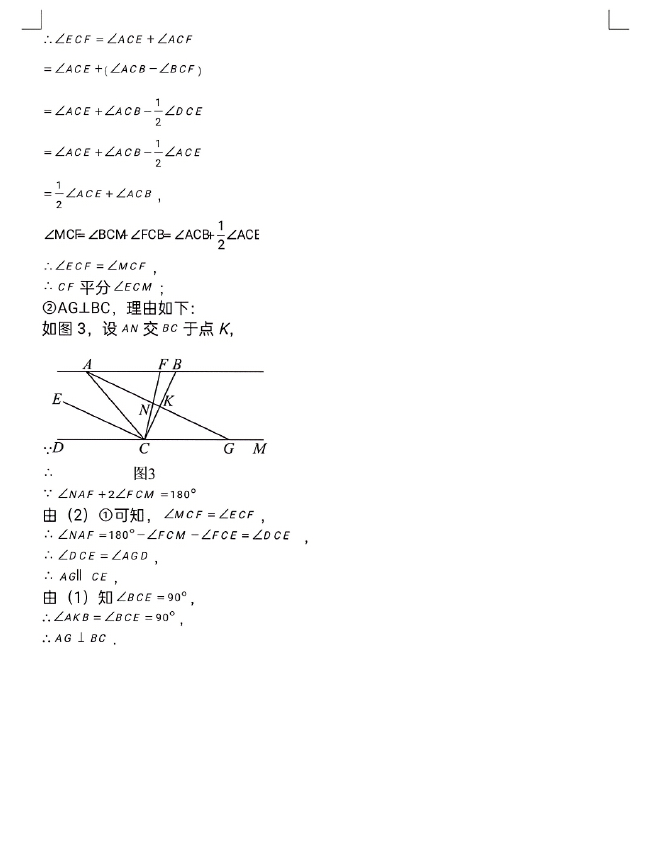 ∴∠ECF=∠ACE+∠ACF
=∠ACE+(∠ACB−∠BCF)
=∠ACE+∠ACB−1/2∠DCE
=∠ACE+∠ACB−1/2∠ACE
=1/2∠ACE+∠ACB,
∠MCF=∠BCM+∠FCB=∠ACB+1/2∠ACE
∴∠ECF=∠MCF,
∴CF平分∠ECM;
②AG⊥BC,理由如下:
如图3,设AN交BC于点K,
A F B
E N K
∵D C G M
∴ 图3
∵∠NAF+2∠FCM=180°
由(2)①可知,∠MCF=∠ECF,
∴∠NAF=180°−∠FCM−∠FCE=∠DCE,
∴∠DCE=∠AGD,
∴AG∥CE,
由(1)知∠BCE=90°,
∴∠AKB=∠BCE=90°,
∴AG⊥BC.